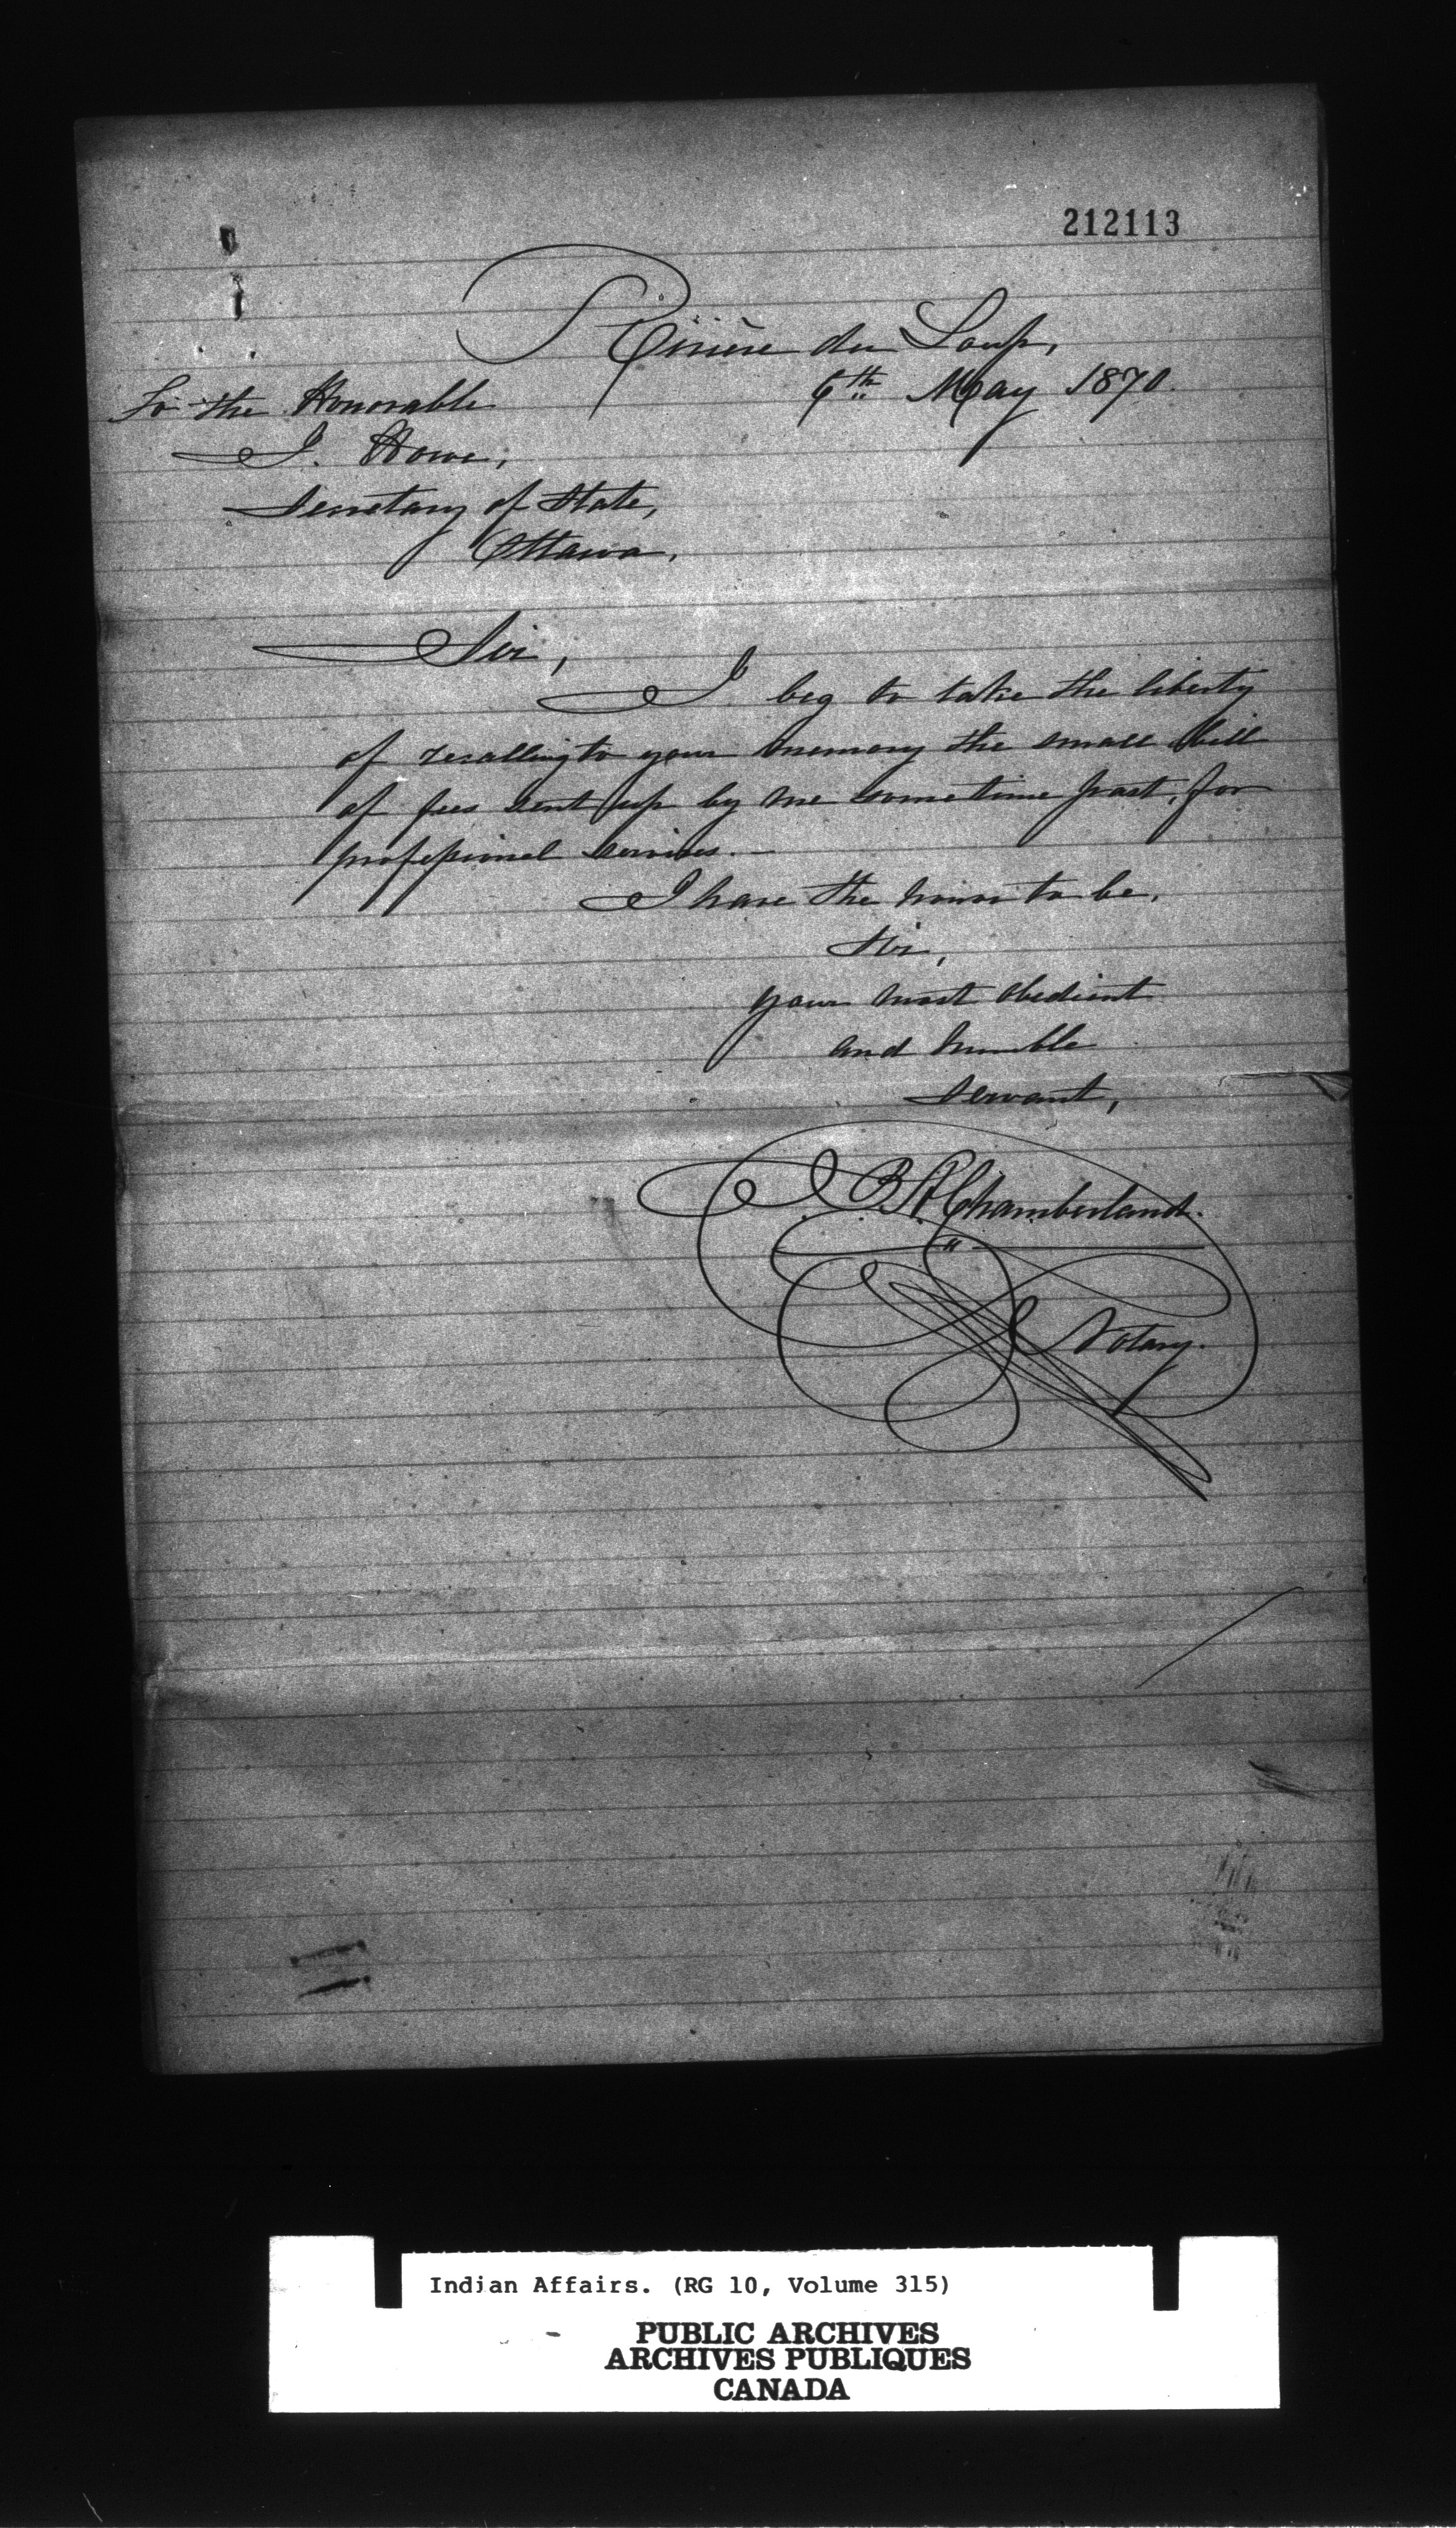 212113
Rivière du Loup,
6th May 1870.
To the Honorable
J. Howe,
Secretary of State,
Ottawa.
Sir,
I beg to take the liberty
of recalling to your memory the small bill
of fees sent up by me sometime past, for
professional services.—
I have the honor to be,
Sir,
your most obedient
and humble
servant,
J B A Chamberland.
Notary.
Indian Affairs. (RG 10, Volume 315)
PUBLIC ARCHIVES
ARCHIVES PUBLIQUES
CANADA